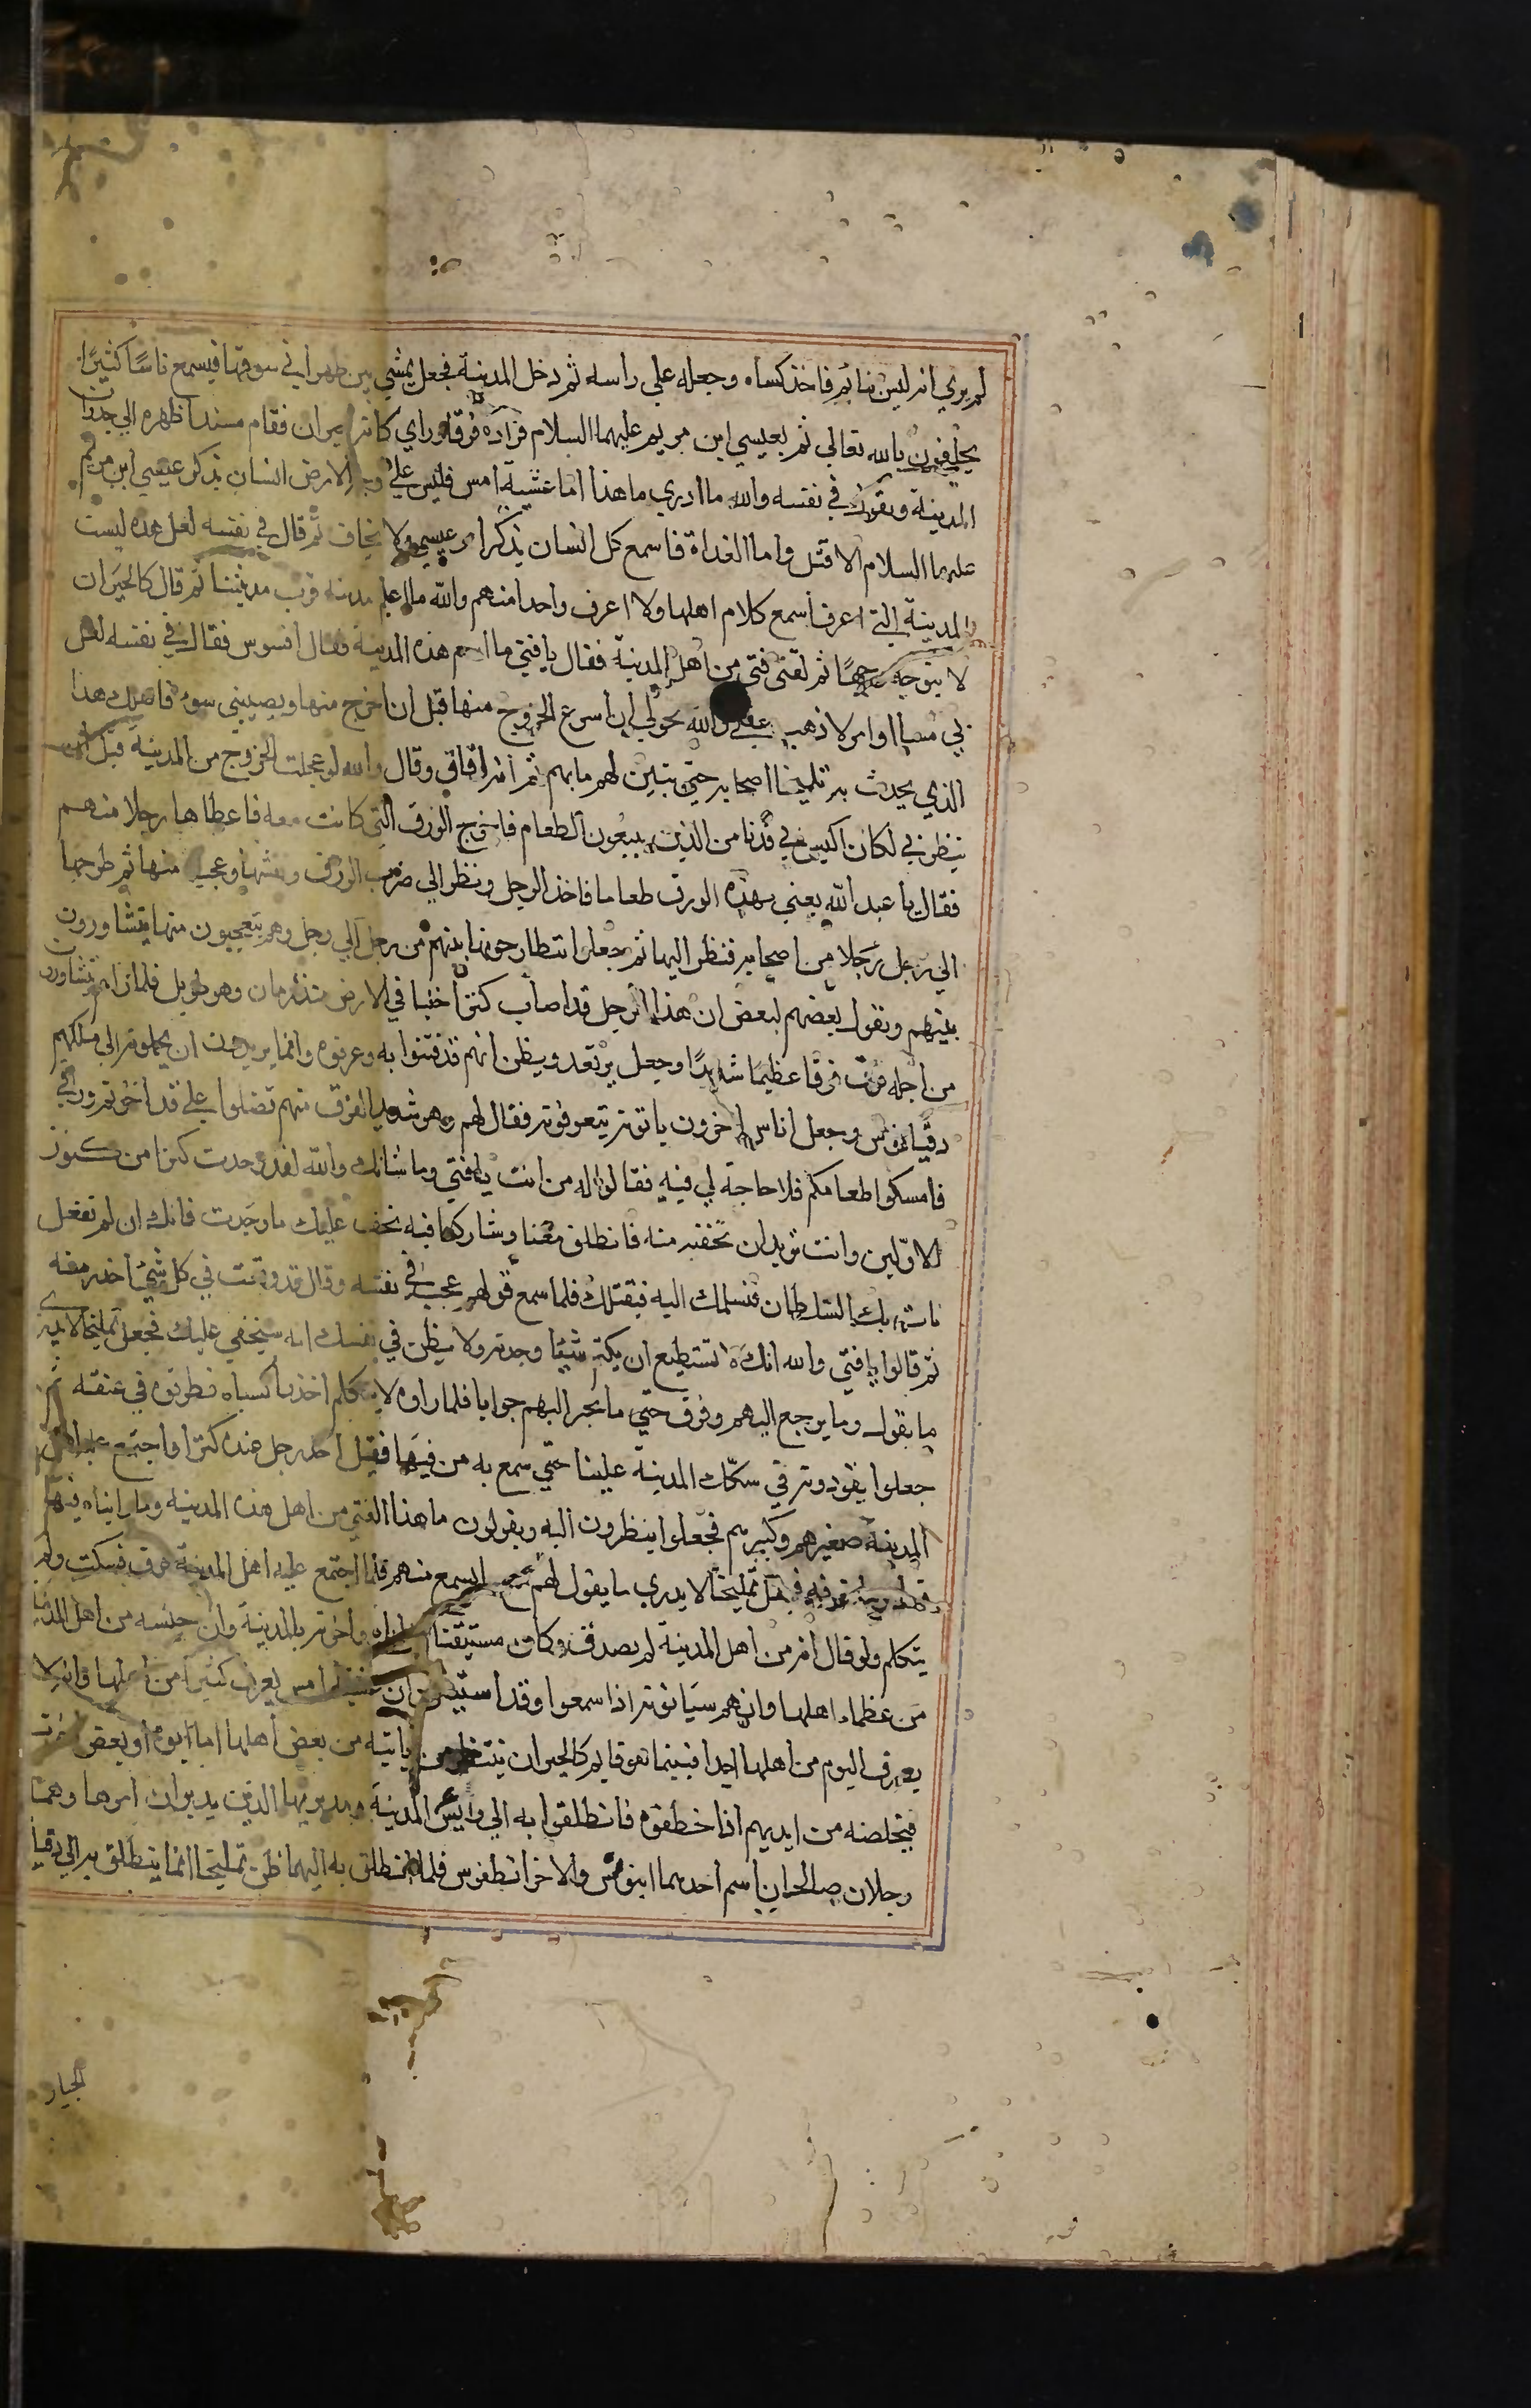 لم يري انه ليس بنائم فاخذ كساه وجعله علي راسه ثم دخل المدينة فجعل يمشي بين ظهراني سوقها فيسمع ناسًا كثيرًا
يحلفون بالله تعالي ثم بعيسي ابن مريم عليهما السلام فزاده فرقا وراي كانه حيران فقام مسندا ظهره الي جدران
المدينة ويقول في نفسه والله ما ادري ما هذا اما عشية امس فليس علي وجه الارض انسان يذكر عيسي ابن مريم
عليهما السلام الا قتل واما الغداة فاسمع كل انسان يذكر امر عيسي ولا يخاف ثم قال في نفسه لعل هذه ليست
المدينة التي اعرف اسمع كلام اهلها ولا اعرف واحدا منهم والله ما اعلم مدينة قرب مدينتنا ثم قال كالحيران
لا يتوجه وجهًا ثم لقي فتي من اهل المدينة فقال يا فتي ما اسم هذه المدينة فقال افسوس فقال في نفسه لعل
بي مسا او امر لا ذهب عقلي والله يحق لي ان اسرع الخروج منها قبل ان اخرج منها ويصيبني سوء فاهلك هذا
الذي يحدث به تمليخا اصحابه حتي يتبين لهم ما بهم ثم انه افاق وقال والله لو عجلت الخروج من المدينة قبل ان
ينظر بي لكان اكيس بي فدنا من الذين يبيعون الطعام فاخرج الورق التي كانت معه فاعطاها رجلا منهم
فقال يا عبد الله بعني بهذه الورق طعاما فاخذ الرجل ونظر الي ضرب الورق ونقشها وعجب منها ثم طرحها
الي رجل رجلا من اصحابه فنظر اليها ثم جعلوا يتطارحونها بينهم من رجل الي رجل وهم يتعجبون منها يتشاورون
بينهم ويقول بعضهم لبعض ان هذا الرجل قد اصاب كنزا خبيا في الارض منذ زمان وهو طويل فلما راهم يتشاورون
من اجله فرق فرقا عظيما شديدًا وجعل يرتعد ويظن انهم قد فتنوا به وعرفوه وانما يريدون ان يحملوه الي ملكهم
دقيانوس وجعل اناس اخرون ياتونه يتعرفونه فقال لهم وهو شديد الفرق منهم تفضلوا علي قد اخذتم ورقي
فامسكوا طعامكم فلا حاجة لي فيه فقالوا له من انت يا فتي وما شانك والله لقد وجدت كنزا من كنوز
الاولين وانت تريد ان تخفيه منه فانطلق معنا وشاركنا فيه نخف عليك ما وجدت فانك ان لم تفعل
نات بك السلطان فنسلمك اليه فيقتلك فلما سمع قولهم عجب في نفسه وقال قد وقعت في كل شيئ احذر منه
ثم قالوا يا فتي والله انك لا تستطيع ان يكتم شيئا وجدته ولا يظن في نفسك انه سيخفي عليك فجعل تمليخا لا يدري
ما يقول وما يرجع اليهم وفرق حتي ما يحر اليهم جوابا فلما راوه لا يتكلم اخذوا كساه فطرقوه في عنقه ثم
جعلوا يقودونه في سكك المدينة علينا حتي سمع به من فيها فقيل اخذ رجل عنده كنزا واجتمع عليه اهل
المدينة صغيرهم وكبيرهم فجعلوا ينظرون اليه ويقولون ما هذا الفتي من اهل هذه المدينة وما رايناه فيها
قط وما نعرفه فجعل تمليخا لا يدري ما يقول لهم مع ما يسمع منهم فلما اجتمع عليه اهل المدينة فرق فسكت ولم
يتكلم ولو قال انه من اهل المدينة لم يصدق وكان مستيقنا ان اباه واخوته بالمدينة وان حسبه من اهل المدينة
من عظماء اهلها وانهم سياتونه اذا سمعوا وقد استيقن ان عشية امس يعرف كثيرا من اهلها وانه لا
يعرف اليوم من اهلها احدا فبينما هو قايم كالحيران ينتظر من ياتيه من بعض اهلها اما ابوه او بعض اخوته
فيخلصه من ايديهم اذا خطفوه فانطلقوا به الي رايس المدينة ومدبريها الذين يدبران امرها وهما
رجلان صالحان اسم احدهما اينوس والاخر انطفوس فلما انطلق به اليهما ظن تمليخا انما ينطلق به الي دقيا
الجبار